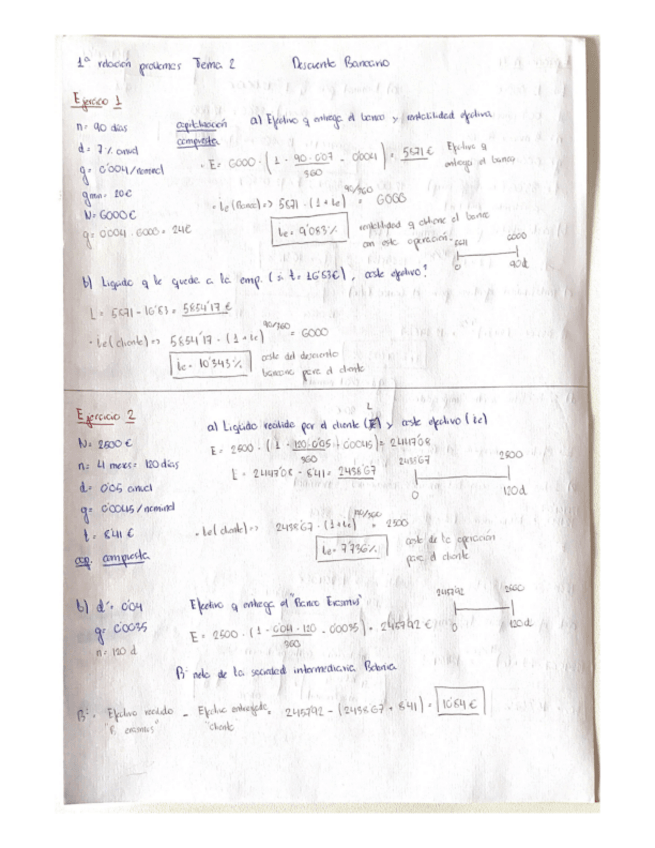 1ª relación problemas Tema 2 Descuento Bancario
Ejercicio 1
n= 90 días
d= 7% anual
g= 0'004/nominal
gmin= 10€
N= 6000€
g= 0'004 · 6000 = 24€
capitalización compuesta
a) Efectivo q entrega el banco y rentabilidad efectiva
· E= 6000 · (1 - 90·0'07/360 - 0'004) = 5871€ Efectivo q entrega el banco
· ie (Banco) => 5871 · (1+ie)^90/360 = 6000
ie= 9'083% rentabilidad q obtiene el banco con esta operación.
5871 6000
0 90d
b) Líquido q le queda a la emp. (si t= 16'83€), coste efectivo?
L = 5871 - 16'83 = 5854'17 €
· ie (cliente) => 5854'17 · (1+ie)^90/360 = 6000
ie= 10'343% coste del descuento bancario para el cliente
Ejercicio 2
N= 2500 €
n= 4 meses= 120 días
d= 0'05 anual
g= 0'0045/nominal
t= 8'41 €
cap. compuesta
L
a) Líquido recibido por el cliente (E) y coste efectivo (ie)
E = 2500 · (1 - 120·0'05/360 - 0'0045) = 2447'08
L = 2447'08 - 8'41 = 2438'67
2438'67 2500
0 120d
· ie (cliente) => 2438'67 · (1+ie)^120/360 = 2500
ie= 7'736% coste de la operación para el cliente
b) d'= 0'04
g= 0'0035
n= 120 d
Efectivo q entrega el "Banco Excantus"
E = 2500 · (1 - 0'04·120/360 - 0'0035) = 2457'92 €
2457'92 2500
0 120d
Bº neto de la sociedad intermediaria
Bº = Efectivo recibido - Efectivo entregado = 2457'92 - (2438'67 + 8'41) = 10'84 €
"cliente"